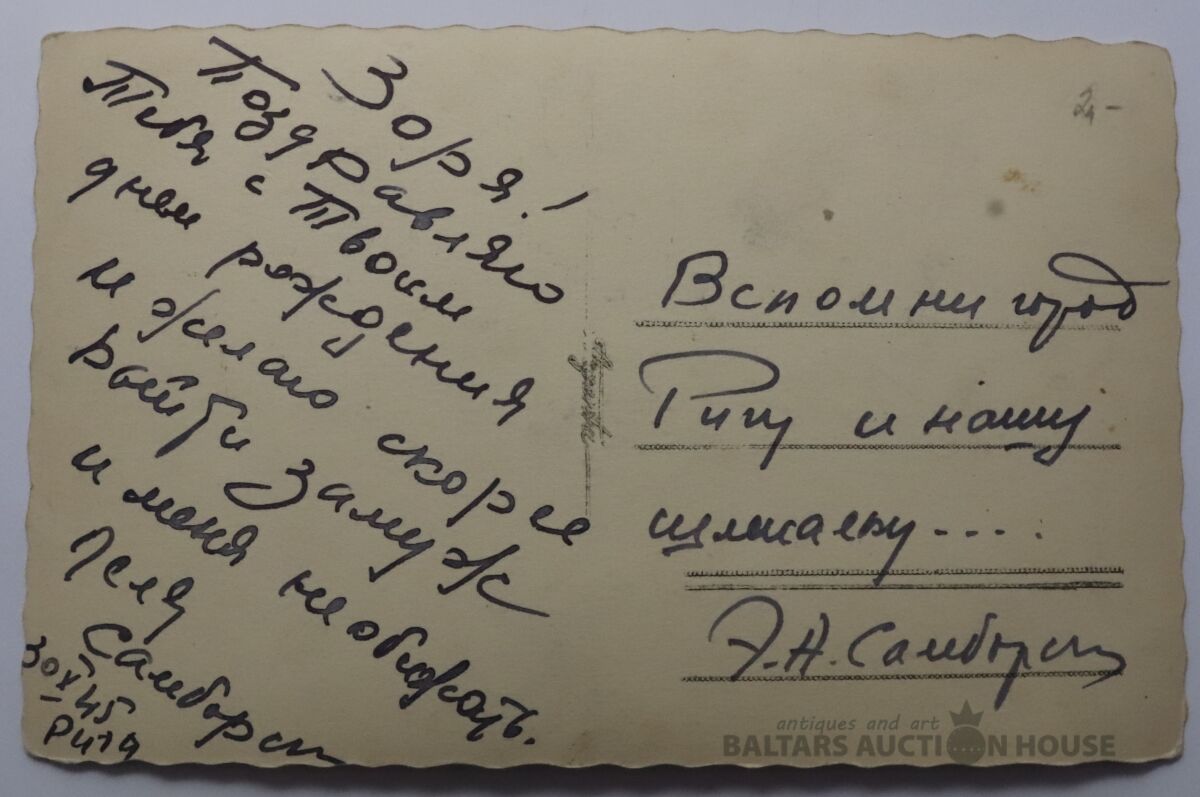 Зоря!
Поздравляю
Тебя с Твоим
днем рождения
и желаю скорее
выйти замуж
и меня не обижать.
Самборск
30 V 45
Рига
2-
Вспомни город
Ригу и нашу
Э.Н. Самборск
antiques and art
BALTARS AUCTION HOUSE